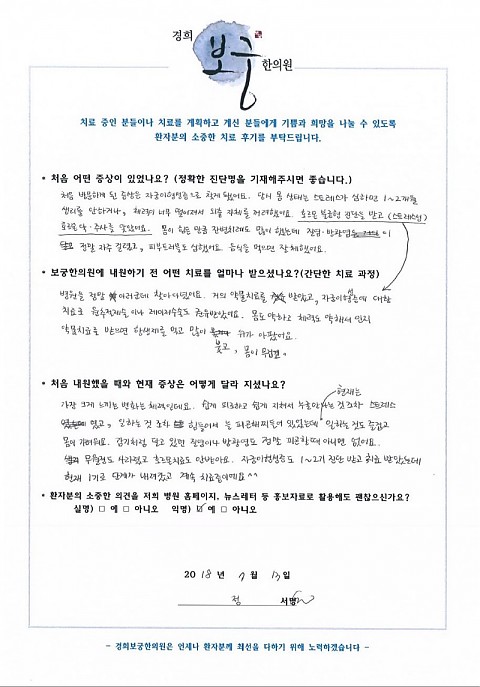 경희
보궁
한의원
치료 중인 분들이나 치료를 계획하고 계신 분들에게 기쁨과 희망을 나눌 수 있도록
환자분의 소중한 치료 후기를 부탁드립니다.
• 처음 어떤 증상이 있었나요? (정확한 진단명을 기재해주시면 좋습니다.)
처음 방문하게 된 증상은 자궁이형성증으로 찾게 됐어요. 당시 몸 상태는 스트레스가 심하면 1~2개월
생리를 안하거나, 체력이 너무 떨어져서 외출 자체를 꺼려했어요. 호르몬 불균형 진단을 받고 (스트레스성)
호르몬약·주사를 맞았어요. 몸이 힘든 만큼 잔병치레도 많이 했는데 질염·방광염
정말 자주 걸렸고, 피부트러블도 심했어요. 음식을 먹으면 잘 체했어요.
• 보궁한의원에 내원하기 전 어떤 치료를 얼마나 받으셨나요?(간단한 치료 과정)
병원을 정말 여러군데 찾아다녔어요. 거의 약물치료를 받았고, 자궁이형성증에 대한
치료로 원추절제술이나 레이저수술도 권유받았어요. 몸도 약하고 체력도 약해서 인지
약물치료를 받으면 항생제를 먹고 많이 붓고, 위가 아팠어요.
몸이 무겁고.
• 처음 내원했을 때와 현재 증상은 어떻게 달라 지셨나요?
가장 크게 느끼는 변화는 체력인데요. 쉽게 피로하고 쉽게 지쳐서 누굴 만나는 것 조차 스트레스
였고, 일하는 것 조차 힘들어서 늘 피곤해찌들어 있었는데 현재는 일하는 것도 즐겁고
몸이 가벼워요. 감기처럼 달고 있던 질염이나 방광염도 정말 피곤할때 아니면 없어요.
무월경도 사라졌고 호르몬치료도 안받아요. 자궁이형성증도 1~2기 진단 받고 치료 받았는데
현재 1기로 단계가 내려갔고 계속 치료중이에요^^
• 환자분의 소중한 의견을 저희 병원 홈페이지, 뉴스레터 등 홍보자료로 활용해도 괜찮으신가요?
실명) □ 예 □ 아니오 익명) ☑ 예 □ 아니오
2018년 7월 13일
정 서명
- 경희보궁한의원은 언제나 환자분께 최선을 다하기 위해 노력하겠습니다 -